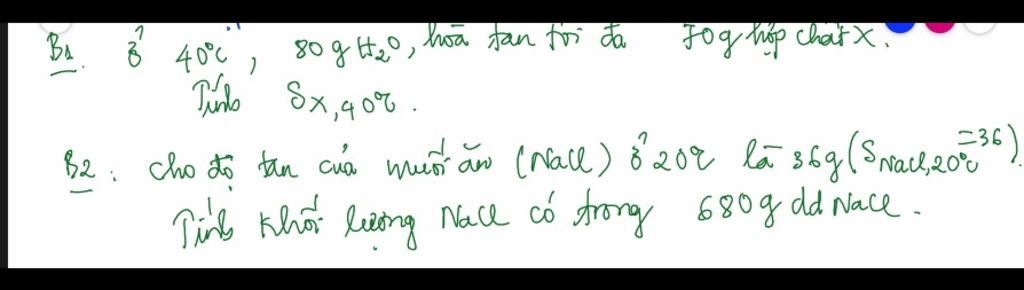 B1. Ở 40°C, 80g H₂O, hoà tan tối đa 70g hợp chất X.
Tính Sx,40°C.
B2: Cho độ tan của muối ăn (NaCl) ở 20°C là 36g (SNaCl,20°C =36).
Tính khối lượng NaCl có trong 680g dd NaCl.